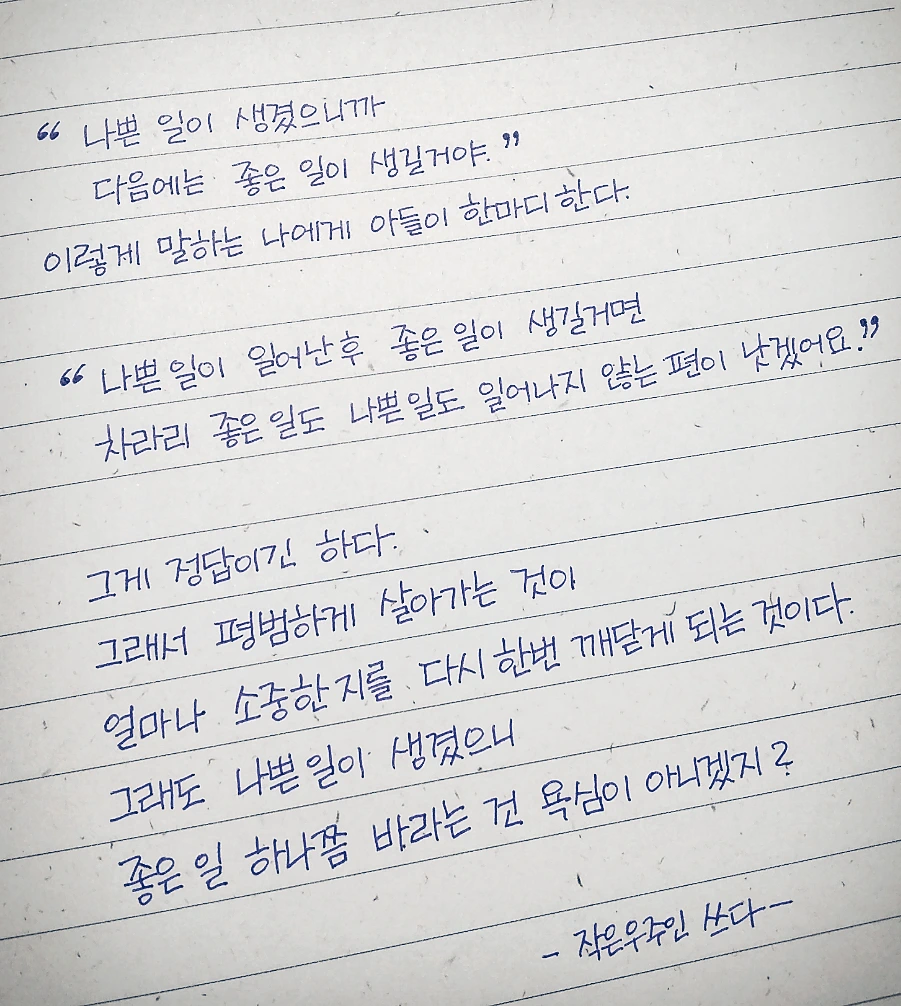 “ 나쁜 일이 생겼으니까
다음에는 좋은 일이 생길거야. ”
이렇게 말하는 나에게 아들이 한마디 한다.
“ 나쁜 일이 일어난 후 좋은 일이 생길거면
차라리 좋은 일도 나쁜 일도 일어나지 않는 편이 낫겠어요. ”
그게 정답이긴 하다.
그래서 평범하게 살아가는 것이
얼마나 소중한 지를 다시 한번 깨닫게 되는 것이다.
그래도 나쁜 일이 생겼으니
좋은 일 하나쯤 바라는 건 욕심이 아니겠지?
- 작은우주인 쓰다 -